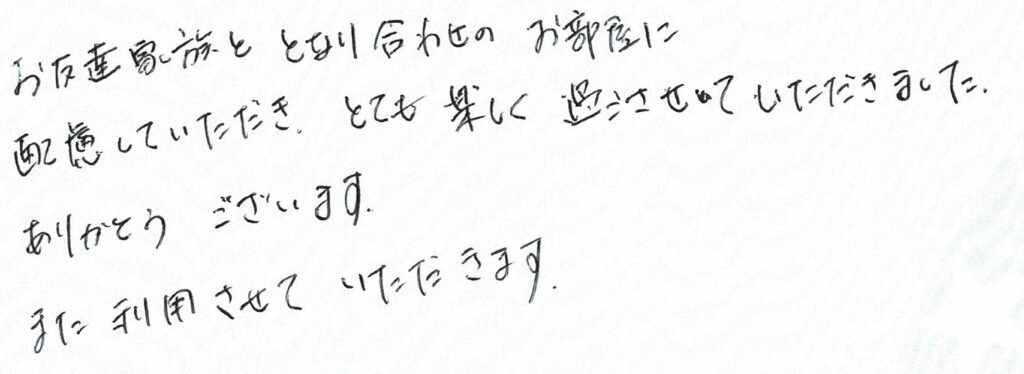 お友達家族と となり合わせの お部屋に
配慮していただき、とても 楽しく 過ごさせて いただきました。
ありがとう ございます。
また 利用させて いただきます。